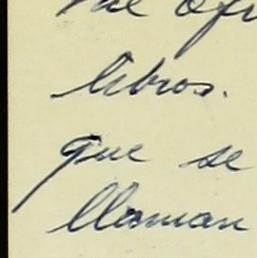 libros.
que se
llaman